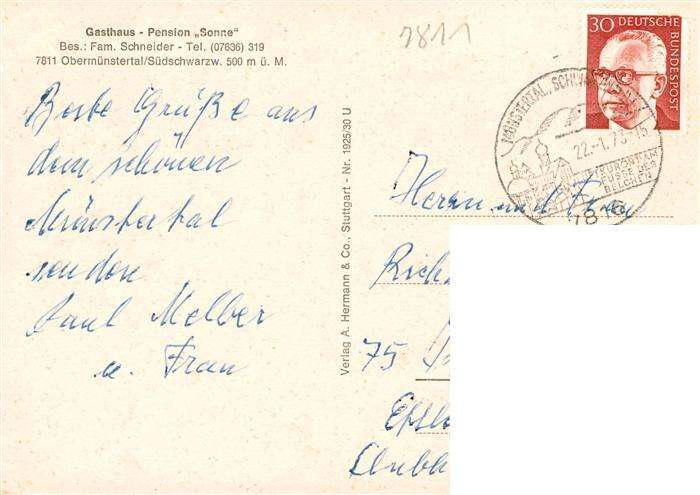 Gasthaus - Pension „Sonne"
Bes.: Fam. Schneider - Tel. (07636) 319
7811 Obermünstertal/Südschwarzw. 500 m ü. M.
7811
30 DEUTSCHE BUNDESPOST
MÜNSTERTAL, SCHWARZWALD
22.-1.73-15
ERHOLUNG AM
FUSSE DES
BELCHEN
7816
Beste Grüße aus
dem schönen
Münstertal
senden
Paul Melber
u. Frau
Verlag A. Hermann & Co., Stuttgart - Nr. 1925/30 U
Herrn und Frau
Rich
75